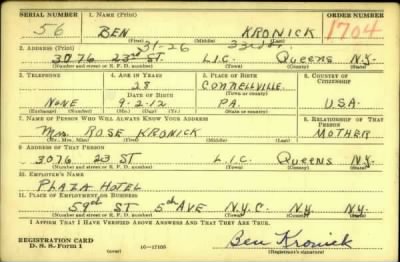 SERIAL NUMBER 1. NAME (Print) ORDER NUMBER
56 BEN KRONICK 1704
(First) (Middle) (Last)
31-26
2. ADDRESS (Print)
3076 23rd ST. L.I.C. Queens N.Y.
(Number and street or R. F. D. number) (Town) (County) (State)
3. TELEPHONE 4. AGE IN YEARS 5. PLACE OF BIRTH 6. COUNTRY OF CITIZENSHIP
28 CONNELLVILLE.
DATE OF BIRTH (Town or county)
NONE 9-2-12 PA. U.S.A.
(Exchange) (No.) (Mo.) (Day) (Yr.) (State or country)
7. NAME OF PERSON WHO WILL ALWAYS KNOW YOUR ADDRESS 8. RELATIONSHIP OF THAT PERSON
Mrs. ROSE KRONICK MOTHER
(Mr., Mrs., Miss) (First) (Middle) (Last)
9. ADDRESS OF THAT PERSON
3076 23 ST L.I.C. Queens N.Y.
(Number and street or R. F. D. number) (Town) (County) (State)
10. EMPLOYER'S NAME
PLAZA HOTEL
11. PLACE OF EMPLOYMENT OR BUSINESS
59th ST 5th AVE N.Y.C. N.Y. N.Y.
(Number and street or R. F. D. number) (Town) (County) (State)
I AFFIRM THAT I HAVE VERIFIED ABOVE ANSWERS AND THAT THEY ARE TRUE.
REGISTRATION CARD
D. S. S. Form 1 (over) 16-17105 Ben Kronick
(Registrant's signature)